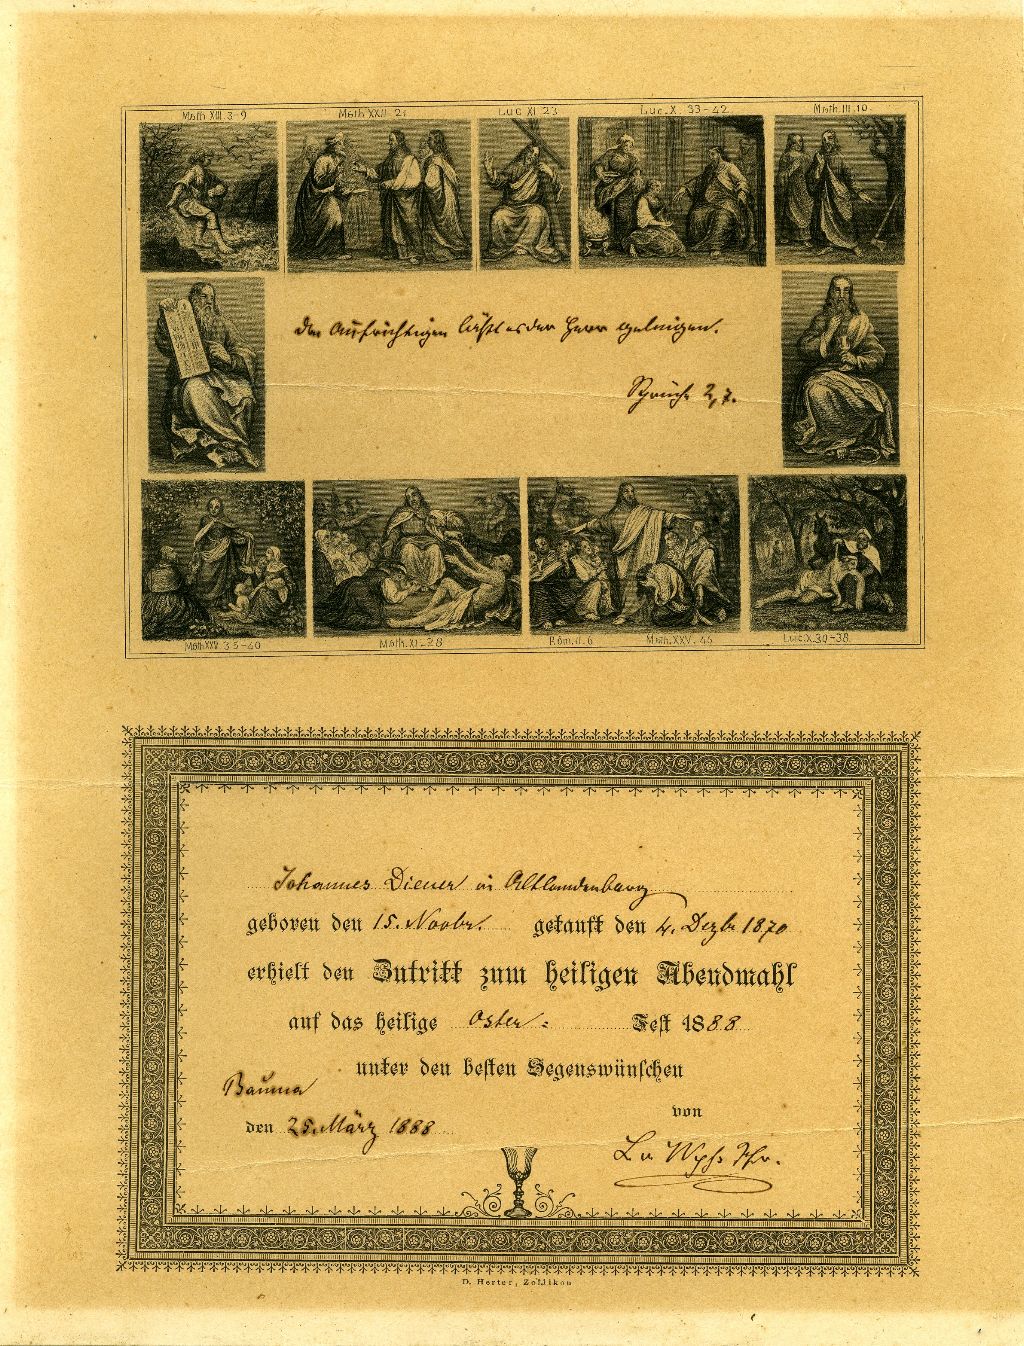 Math XIII. 3-9
Math XXII. 21
Luc XI 23
Luc. X. 33-42
Math. III. 10
Den Aufrichtigen läßt es der Herr gelingen.
Sprüch 2,7.
Math XXV. 35-40
Math. XI. 28
Röm. II. 6
Math. XXV. 45
Luc. X. 30-38
Johannes Diener in Altlandenberg
geboren den 15. Novbr. getauft den 4. Dezbr 1870
erhielt den Zutritt zum heiligen Abendmahl
auf das heilige Oster- Fest 1888
unter den besten Segenswünschen
Bauma
den 25. März 1888
von
D. Herter, Zollikon